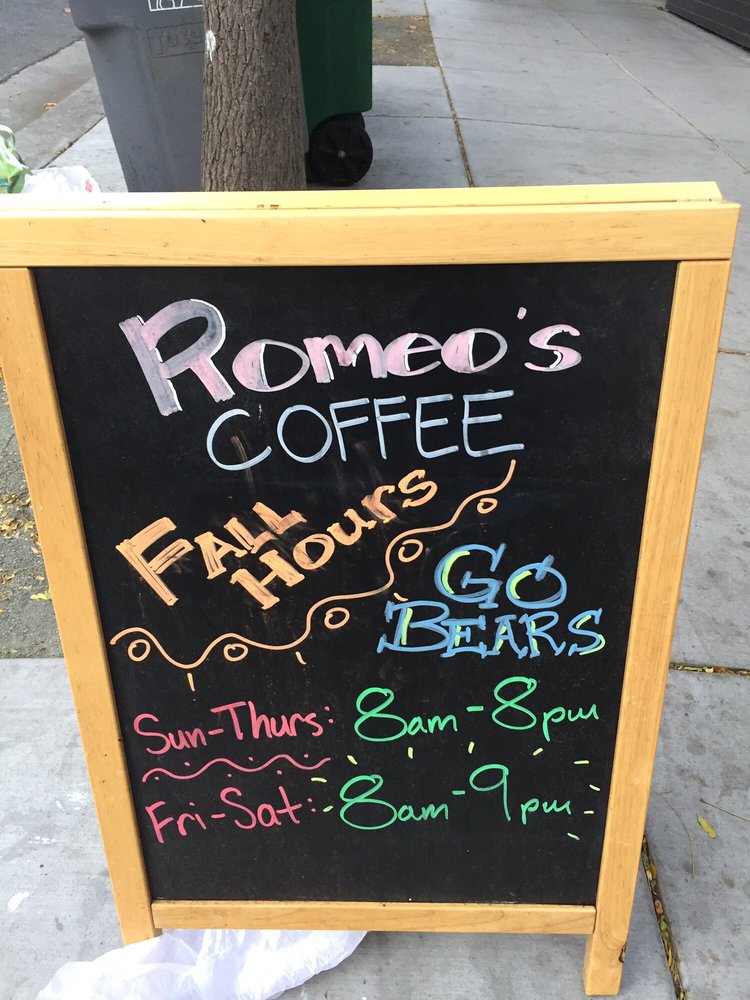 Romeo's
COFFEE
FALL
Hours
GO
BEARS
Sun-Thurs: 8am-8pm
Fri-Sat: 8am-9pm